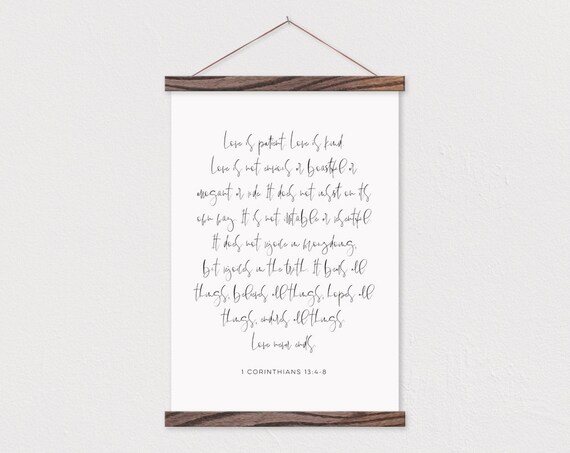 Love is patient. Love is kind.
Love is not envious or boastful or
arrogant or rude. It does not insist on its
own way. It is not irritable or resentful.
It does not rejoice in wrongdoing,
but rejoices in the truth. It bears all
things, believes all things, hopes all
things, endures all things.
Love never ends.
1 CORINTHIANS 13:4-8